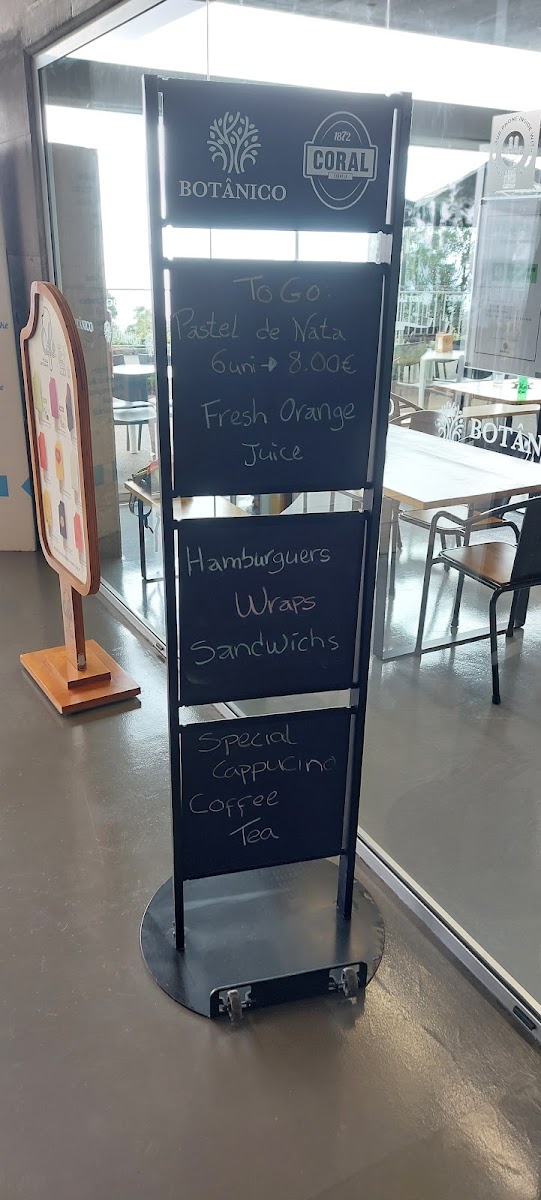 1872
CORAL
BOTÂNICO
To Go.
Pastel de Nata
6uni→ 8.00€
Fresh Orange
Juice
Hamburguers
Wraps
Sandwichs
Special
Cappucino
Coffee
Tea
BOTÂN